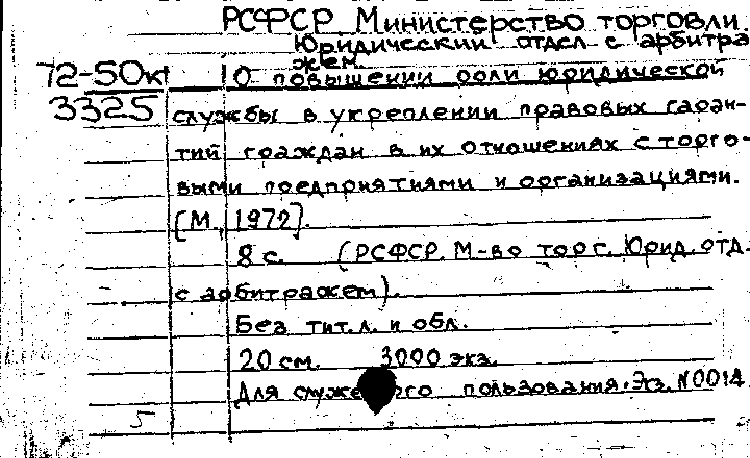 РСФСР. Министерство торговли.
Юридический отдел с арбитра
жем.
72-50кт О повышении роли юридической
3325 службы в укреплении правовых гаран-
тий граждан в их отношениях с торго-
выми предприятиями и организациями.
[М., 1972].
8 с. (РСФСР. М-во торг. Юрид. отд.
с арбитражем).
Без тит. л. и обл.
20 см. 3000 экз.
Для служебного пользования. Экз. N0014
5